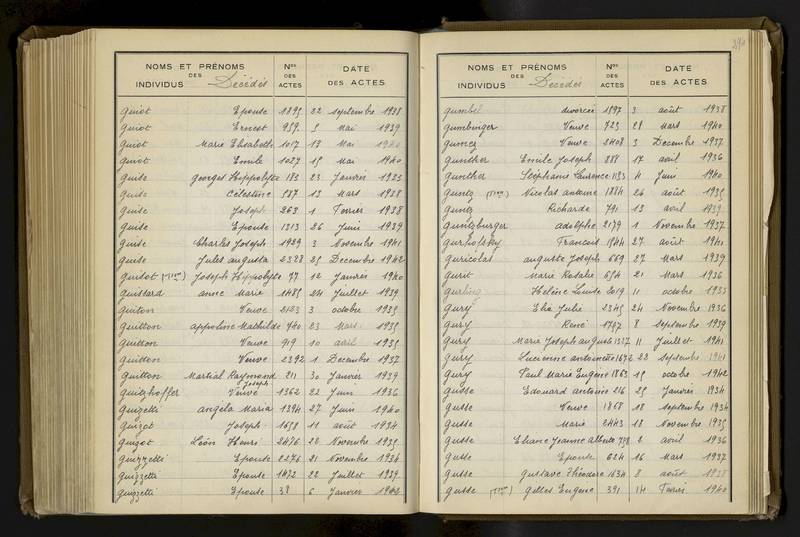 NOMS ET PRÉNOMS
DES
INDIVIDUS Décédés
Nos
DES
ACTES
DATE
DES ACTES
Guiot Epouse 1895 22 septembre 1938
Guiot Ernest 959 5 Mai 1939
Guiot Marie Elisabeth 1017 13 Mai 1940
Guiot Emile 1027 15 Mai 1940
Guise Georges Hippolyte 183 23 Janvier 1935
Guise Célestine 587 13 Mars 1938
Guise Joseph 263 1 Février 1938
Guise Epouse 1313 26 Juin 1939
Guise Charles Joseph 1989 3 Novembre 1941
Guise Jules Augusta 2328 25 Decembre 1942
Guisot Joseph Hippolyte 77 12 Janvier 1940
Guissard Anne Marie 1485 24 Juillet 1939
Guiton Veuve 2123 3 octobre 1935
Guitton Appoline Mathilde 740 23 Mars 1935
Guitton Veuve 919 10 avril 1935
Guitton Veuve 2392 1 Decembre 1937
Guitton Martial Raymond Joseph 211 30 Janvier 1939
Guitzhoffer Veuve 1362 22 Juin 1936
Guizetti Angela Maria 1394 27 Juin 1940
Guizot Joseph 1658 11 août 1934
Guizot Léon Henri 2476 20 Novembre 1935
Guizzetti Epouse 2276 21 Novembre 1934
Guizzetti Epouse 1472 22 Juillet 1939
Guizzetti Epouse 38 6 Janvier 1942
NOMS ET PRÉNOMS
DES
INDIVIDUS Décédés
Nos
DES
ACTES
DATE
DES ACTES
Gumbel divorcée 1597 3 août 1938
Gumbinger Veuve 723 28 Mars 1940
Gumez Veuve 2408 3 Decembre 1937
Gunther Emile Joseph 888 17 avril 1936
Gunther Stéphanie Laurence 1133 4 Juin 1940
Guntz Nicolas Antoine 1884 26 août 1935
Guntz Richarde 791 13 avril 1939
Guntzburger Adolphe 2179 1 Novembre 1937
Gurhofsky Francois 1544 27 août 1941
Guricolas Auguste Joseph 669 27 Mars 1939
Gurit Marie Rosalie 654 21 Mars 1936
Gurling Hélène Louise 2019 11 octobre 1933
Gury Elia Julie 2345 24 Novembre 1936
Gury René 1757 8 septembre 1939
Gury Marie Joseph Auguste 1317 11 Juillet 1941
Gury Lucienne Antoinette 1672 22 septembre 1941
Gury Paul Marie Eugene 1863 15 octobre 1942
Gusse Edouard Antoine 216 25 Janvier 1934
Gusse Veuve 1868 18 septembre 1934
Gusse Marie 2443 18 Novembre 1935
Gusse Eliane Jeanne Alberte 758 2 avril 1936
Gusse Epouse 624 16 Mars 1937
Gusse Gustave Théodore 1634 8 août 1938
Gusse Gilles Eugene 391 14 Février 1940